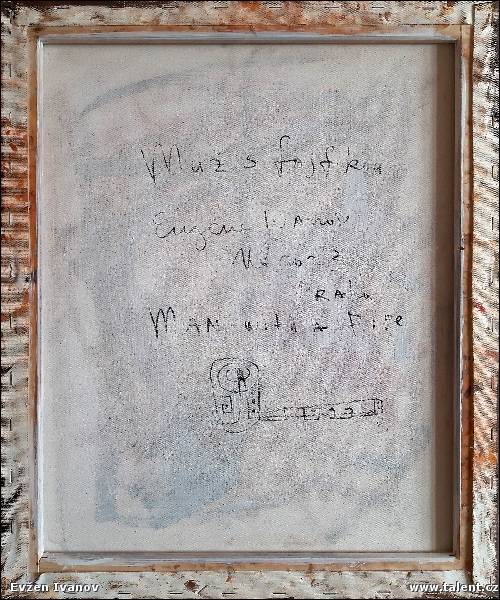 Muž s fajfkou
Eugene Ivanov
Man with a Pipe
Evžen Ivanov
www.talent.cz